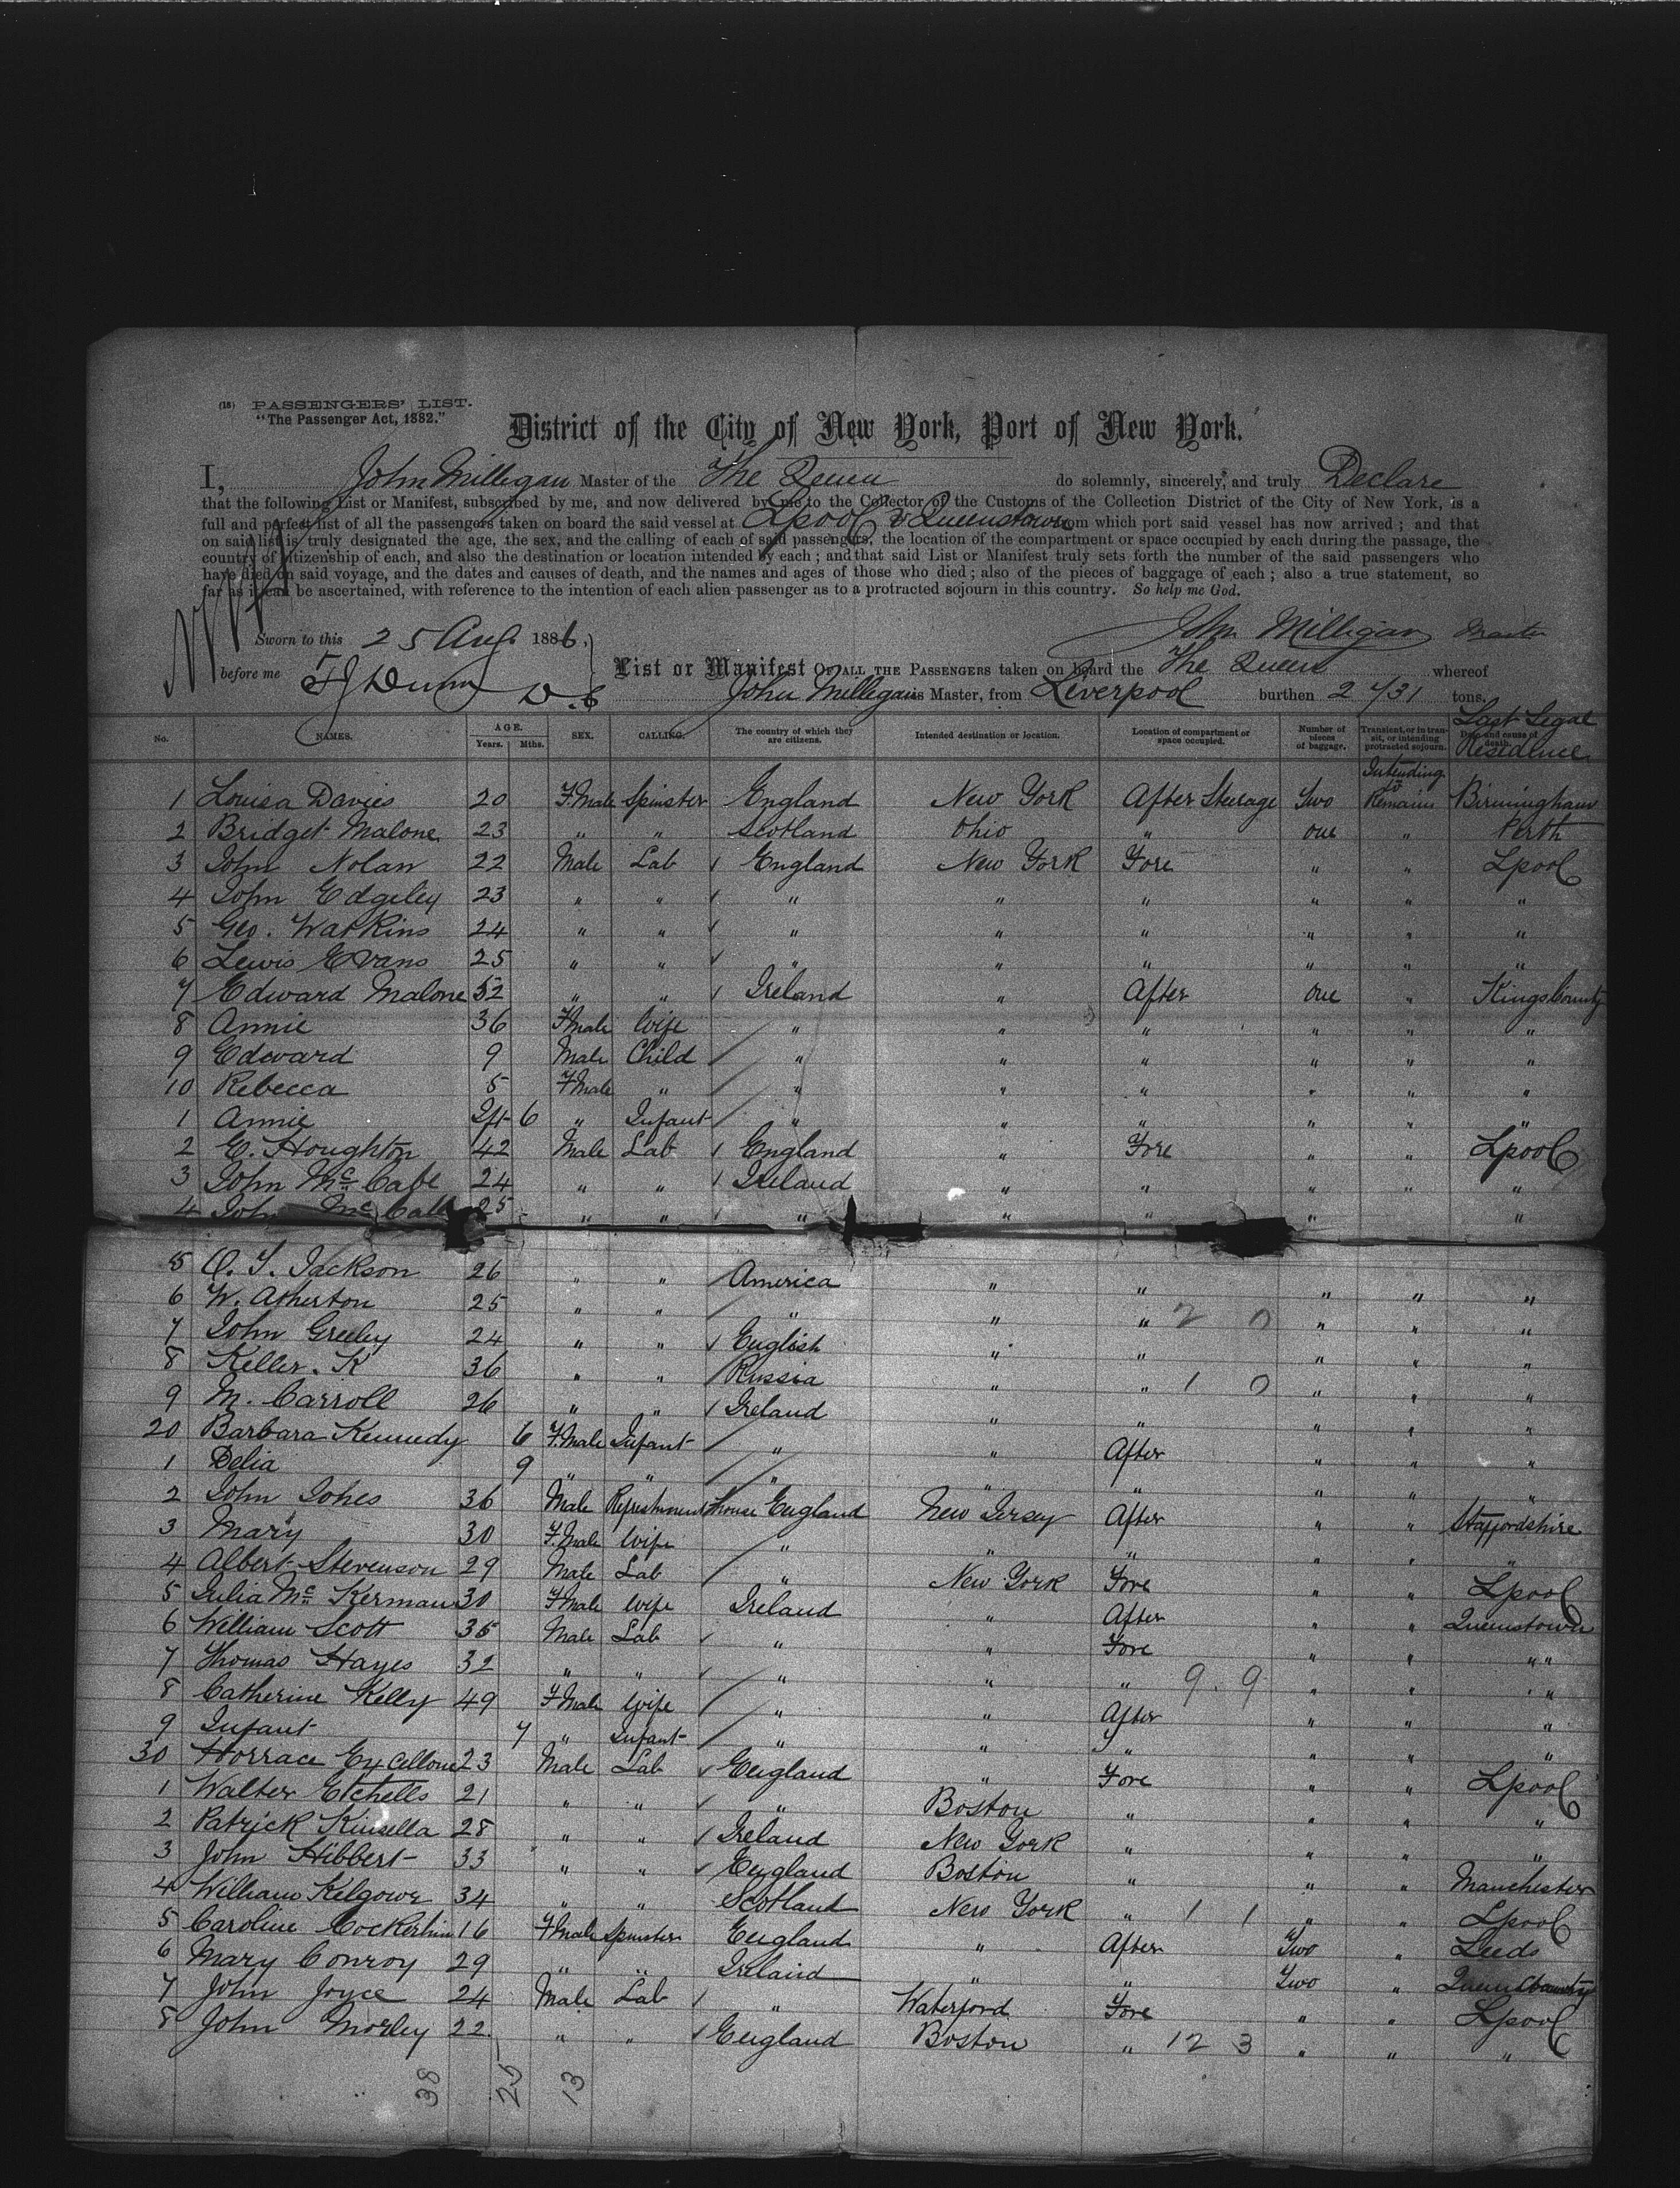 (18) PASSENGERS' LIST.
"The Passenger Act, 1882."
District of the City of New York, Port of New York.
I, John Milligan Master of the The Queen do solemnly, sincerely, and truly Declare
that the following List or Manifest, subscribed by me, and now delivered by me to the Collector of the Customs of the Collection District of the City of New York, is a
full and perfect list of all the passengers taken on board the said vessel at Lpool & Queenstown from which port said vessel has now arrived; and that
on said list is truly designated the age, the sex, and the calling of each of said passengers, the location of the compartment or space occupied by each during the passage, the
country of citizenship of each, and also the destination or location intended by each; and that said List or Manifest truly sets forth the number of the said passengers who
have died on said voyage, and the dates and causes of death, and the names and ages of those who died; also of the pieces of baggage of each; also a true statement, so
far as it can be ascertained, with reference to the intention of each alien passenger as to a protracted sojourn in this country. So help me God.
Sworn to this 25 Aug 1886. John Milligan Master
before me List or Manifest OF ALL THE PASSENGERS taken on board the The Queen whereof
John Milligan is Master, from Liverpool burthen 2431 tons.
No. NAMES. AGE. Years. Mths. SEX. CALLING. The country of which they are citizens. Intended destination or location. Location of compartment or space occupied. Number of pieces of baggage. Transient, or in transit, or intending protracted sojourn. Date and cause of death. Last Legal Residence
1 Louisa Davies 20 F.Male Spinster England New York After Steerage Two Intending to Remain Birmingham
2 Bridget Malone 23 " " Scotland Ohio " one " Perth
3 John Nolan 22 Male Lab England New York Fore " " Lpool
4 John Edgeley 23 " " " " " " " "
5 Geo. Watkins 24 " " " " " " " "
6 Lewis Evans 25 " " " " " " " "
7 Edward Malone 52 " " Ireland " After one " Kings County
8 Annie 36 F.Male Wife " " " " " "
9 Edward 9 Male Child " " " " " "
10 Rebecca 5 F.Male " " " " " " "
1 Annie 6 " Infant " " " " " "
2 E. Houghton 42 Male Lab England " Fore " " Lpool
3 John McCabe 24 " " Ireland " " " " "
4 John McCall 25 " " " " " " "
5 O. T. Jackson 26 " " America " " " " "
6 W. Atherton 25 " " " " " 2 0 " " "
7 John Greeley 24 " " English " " " " "
8 Keller. K 36 " " Russia " " 1 0 " " "
9 M. Carroll 26 " " Ireland " " " " "
20 Barbara Kennedy 6 F.Male Infant " " After " " "
1 Delia 9 " " " " " " " "
2 John Jones 36 Male Refreshment house England New Jersey After " " Staffordshire
3 Mary 30 F.Male Wife " " " " " "
4 Albert Stevenson 29 Male Lab " New York Fore " " Lpool
5 Julia McKerman 30 F.Male Wife Ireland " After " " Queenstown
6 William Scott 35 Male Lab " " Fore " " " "
7 Thomas Hayes 32 " " " " " 9. 9 " " " "
8 Catherine Kelly 49 F.Male Wife " " After " " "
9 Infant 7 " Infant " " " " " "
30 Horrace 23 Male Lab England " Fore " " Lpool
1 Walter Etchells 21 " " " Boston " " " "
2 Patrick Kinsella 28 " " Ireland New York " " " "
3 John Hibbert 33 " " England Boston " " " Manchester
4 William Kilgour 34 " " Scotland New York " 1 1 " " Lpool
5 Caroline 16 F.Male Spinster England " After Two " Leeds
6 Mary Conroy 29 " " Ireland " " Two " Queens County
7 John Joyce 24 Male Lab " Waterford Fore " " Lpool
8 John Morley 22 " " England Boston " 12 3 " " "
38 25 13